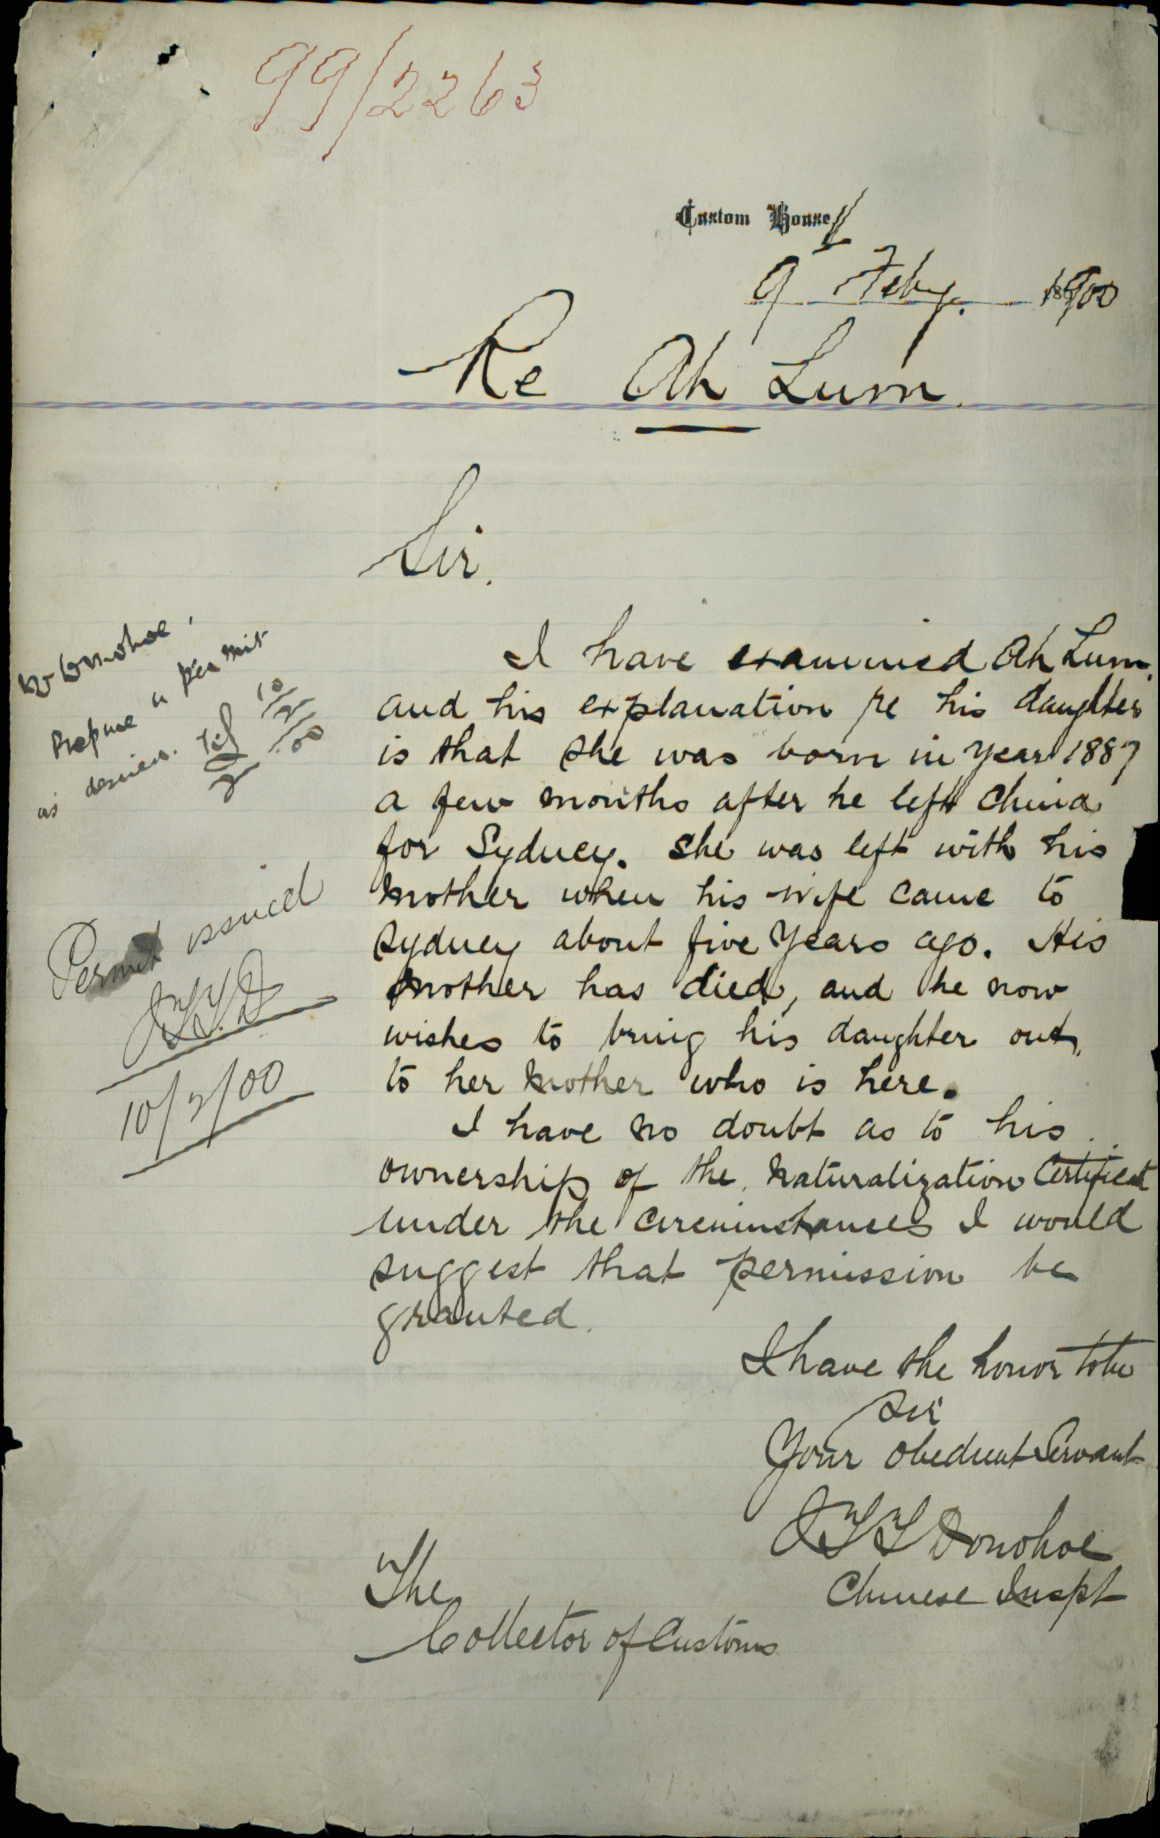 99/2263
Custom House
9th Feby. 1900
Re Ah Lum.
Sir.
I have examined Ah Lum.
and his explanation re his daughter
is that she was born in year 1887
a few months after he left China
for Sydney. She was left with his
mother when his wife came to
Sydney about five years ago. His
mother has died, and he now
wishes to bring his daughter out,
to her mother who is here.
I have no doubt as to his
ownership of the naturalization Certificate
under the circumstances I would
suggest that permission be
granted.
I have the honor to be
Sir
Your obedient Servant
JTT Donohoe
Chinese Inspt
The
Collector of Customs
Mr Donohoe,
Prepare a permit
as desired.
10/2/00
Permit issued
JTTD
10/2/00